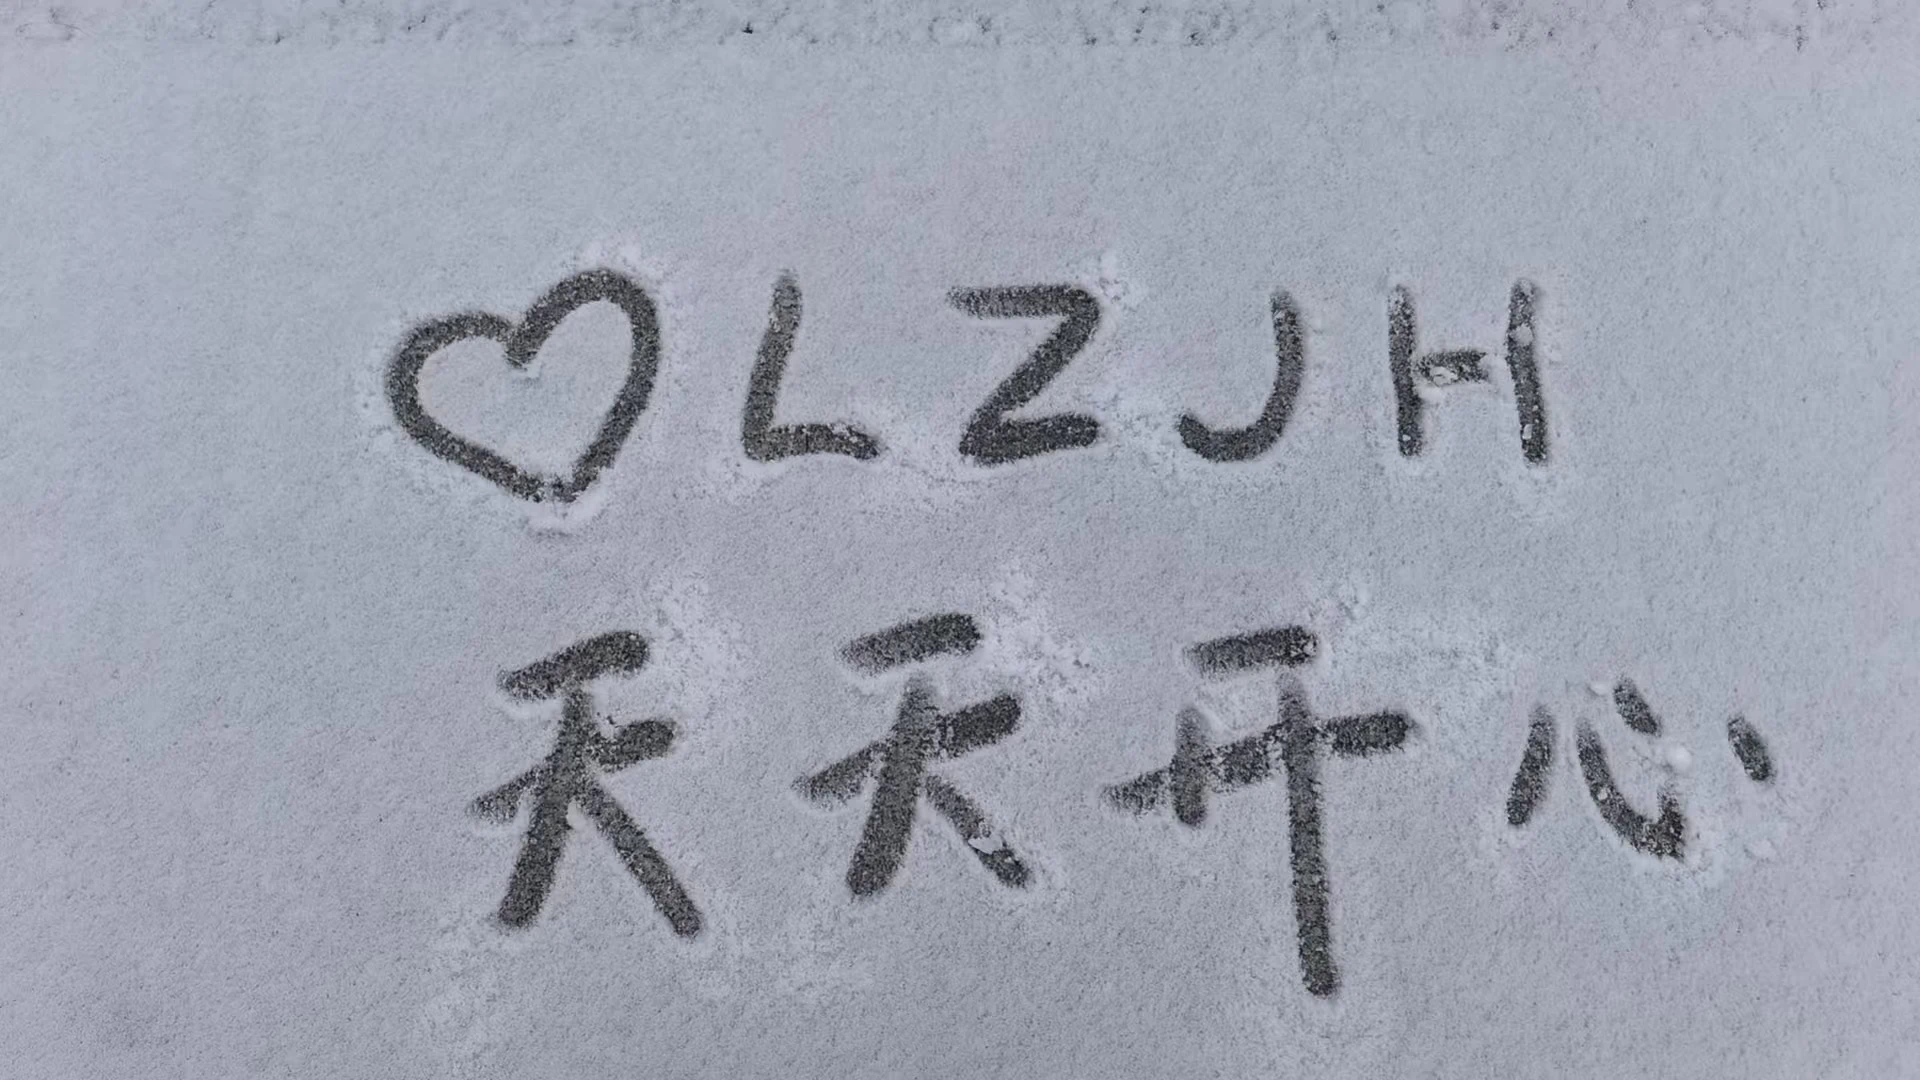 ♡LZJH
天天开心